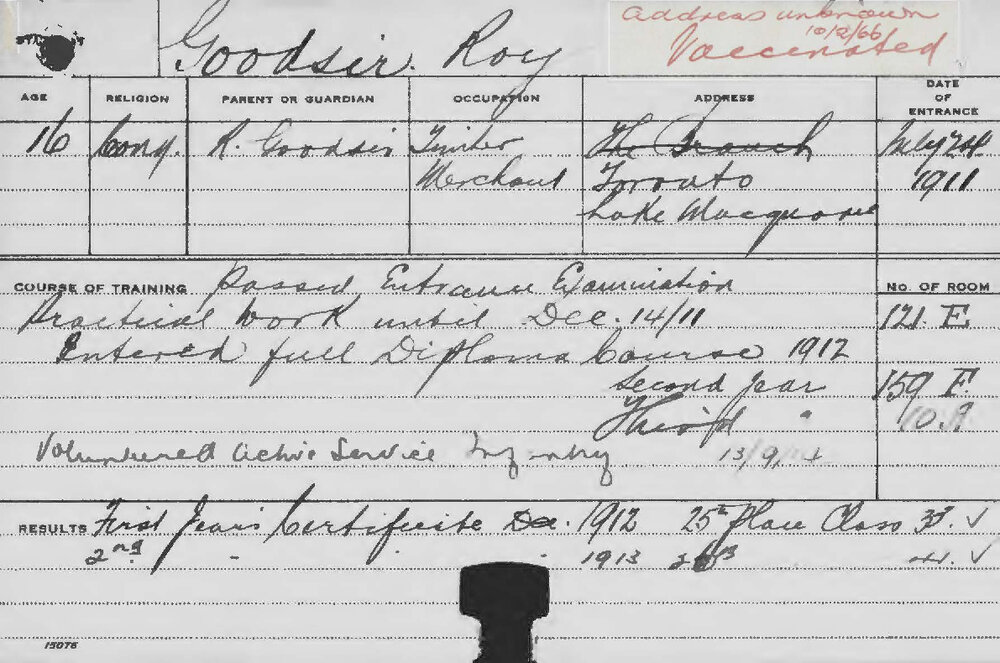 Goodsir. Roy
Address unknown
10/2/66
Vaccinated
AGE RELIGION PARENT OR GUARDIAN OCCUPATION ADDRESS DATE OF ENTRANCE
16 Cong. R. Goodsir Timber The Branch July 24
Merchant Toronto 1911
Lake Macquarie
COURSE OF TRAINING Passed Entrance Examination No. OF ROOM
Practical work until Dec. 14/11 121. E
Entered full Diploma Course 1912
Second Year 159 F.
Third "
Volunteered Active Service Infantry 13/9/
RESULTS First Years Certificate Dec. 1912 25th Place Class 33. ✓
2nd " " " 1913 41. ✓
15076